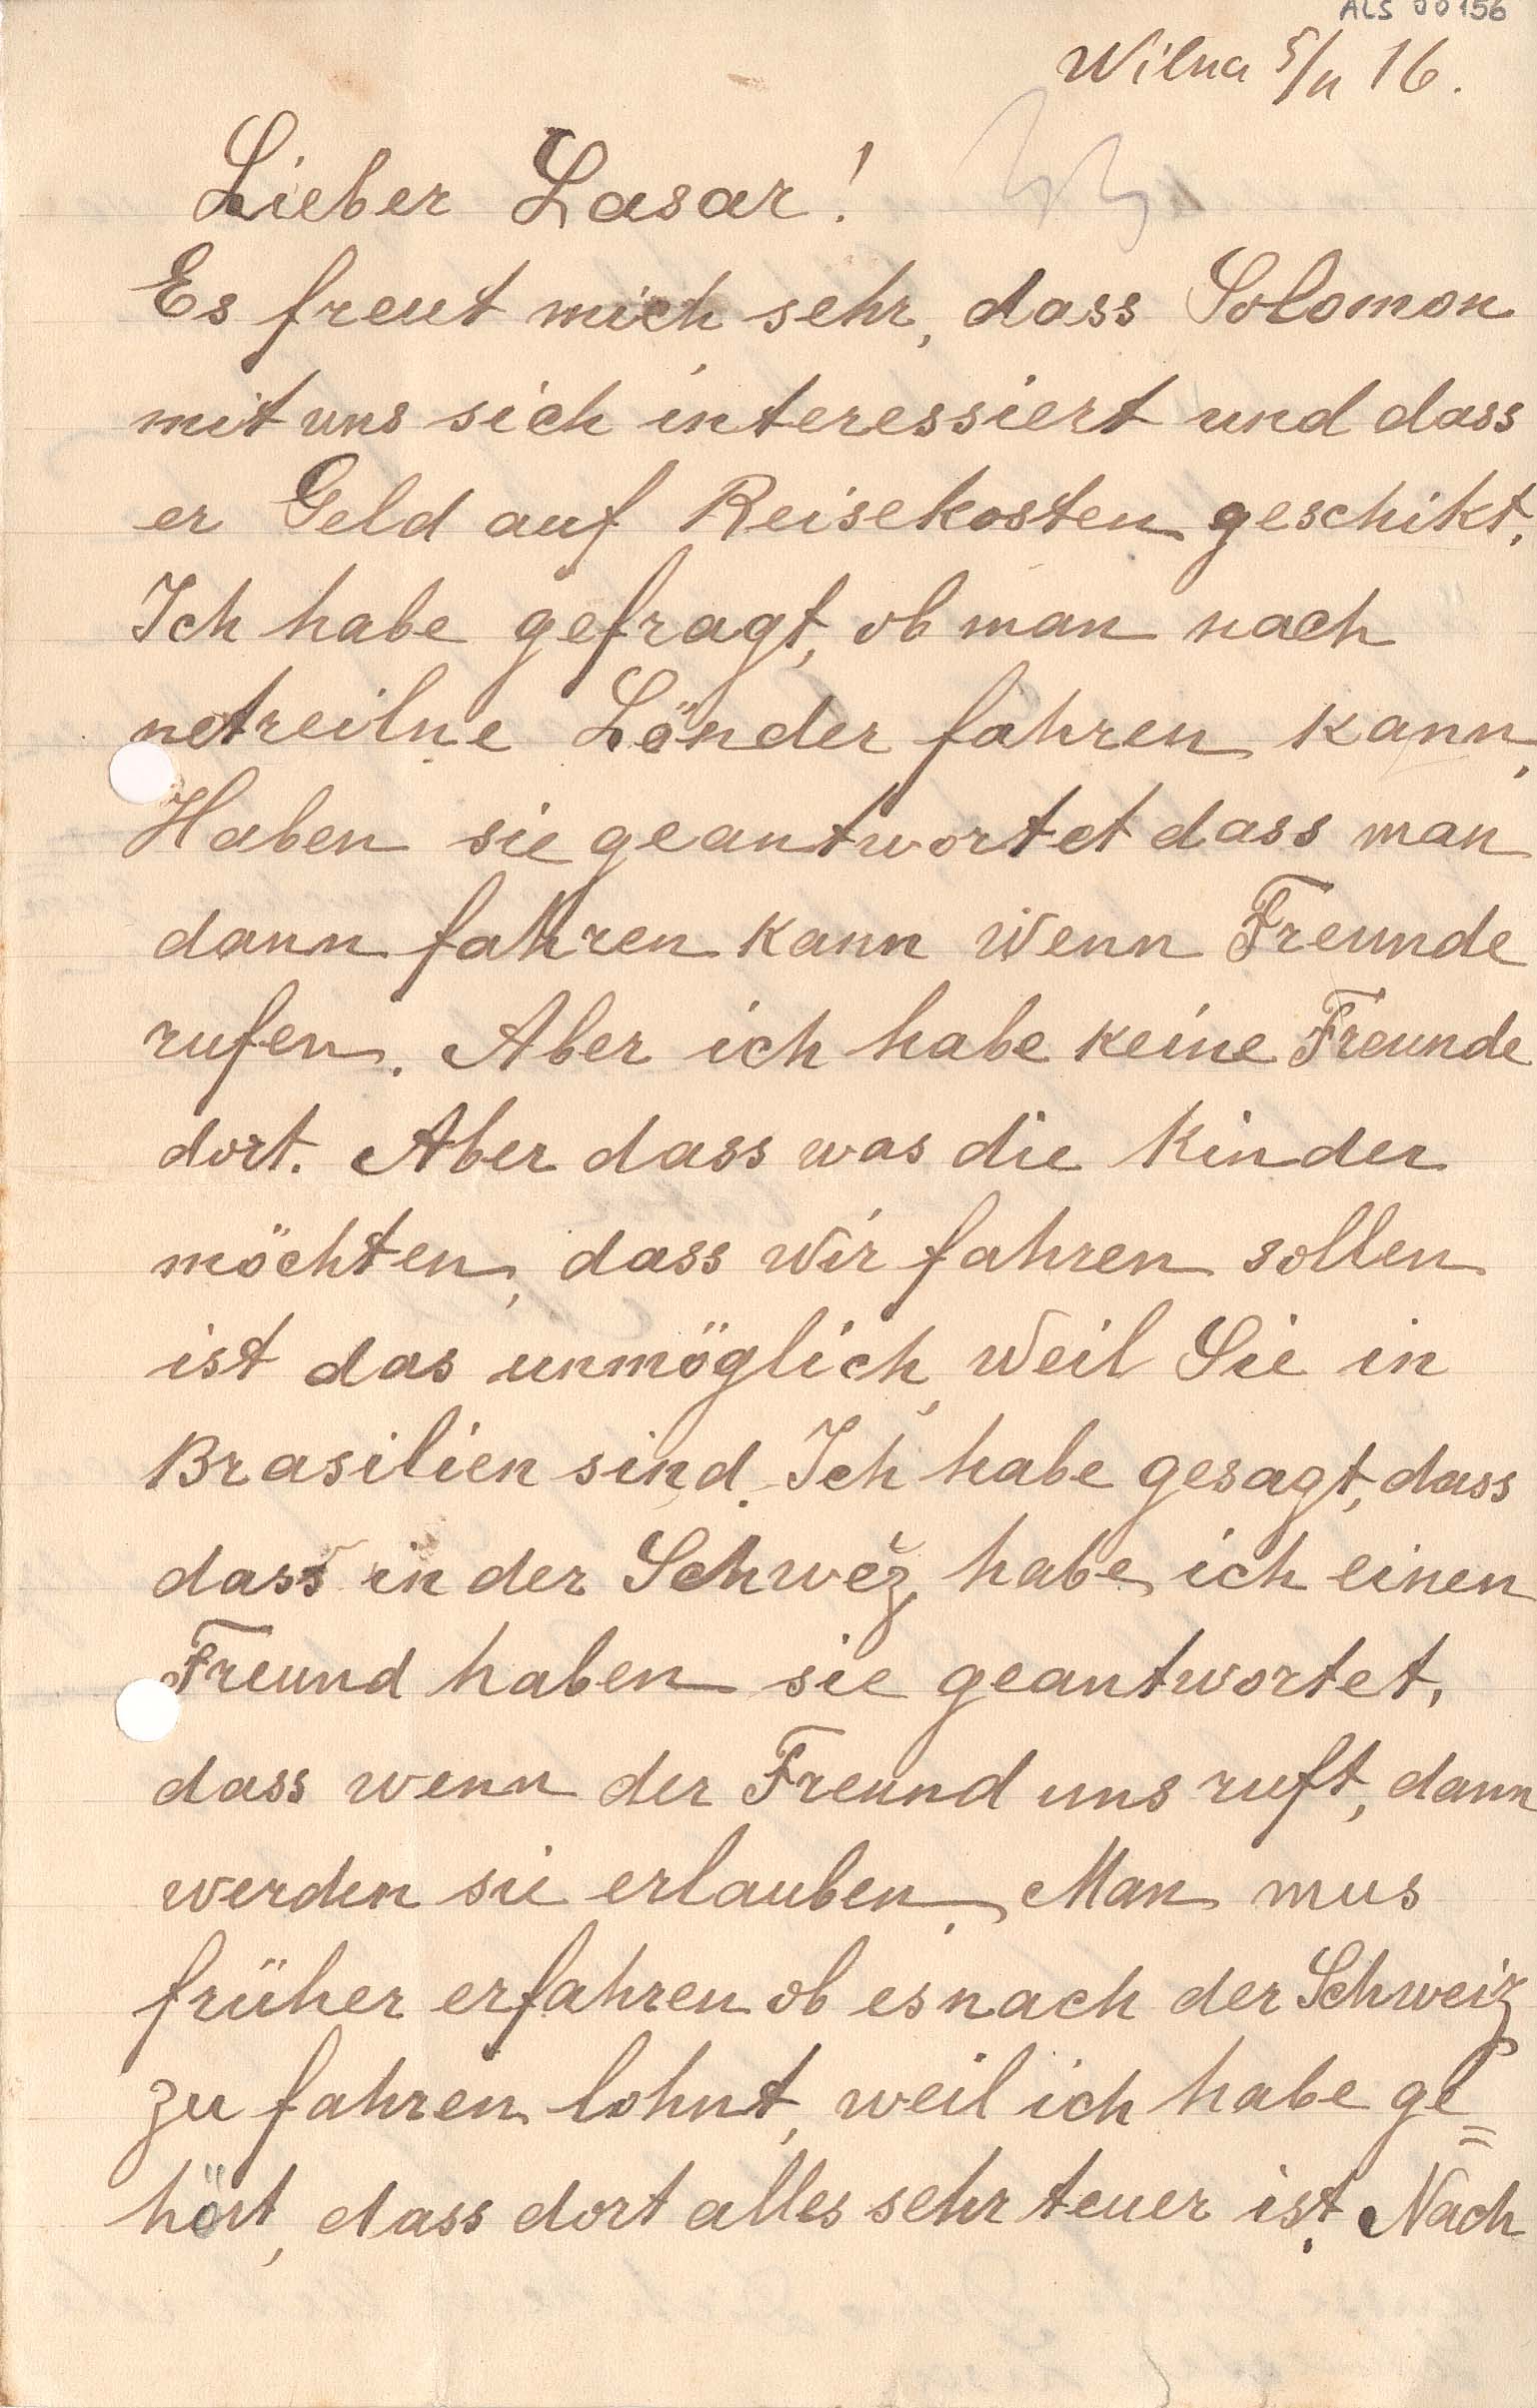 ALS 00156
Wilna 5/II 16.
Lieber Lasar!
Es freut mich sehr, dass Solomon
mit uns sich interessiert und dass
er Geld auf Reisekosten geschikt.
Ich habe gefragt, ob man nach
netreilne Länder fahren kann.
Haben sie geantwortet dass man
dann fahren kann wenn Freunde
rufen. Aber ich habe keine Freunde
dort. Aber dass was die Kinder
möchten, dass wir fahren sollen
ist das unmöglich, weil Sie in
Brasilien sind. Ich habe gesagt, dass
dass in der Schwez habe ich einen
Freund haben sie geantwortet,
dass wenn der Freund uns ruft, dann
werden sie erlauben. Man mus
früher erfahren ob es nach der Schweiz
zu fahren lohnt, weil ich habe ge=
hört, dass dort alles sehr teuer ist. Nach